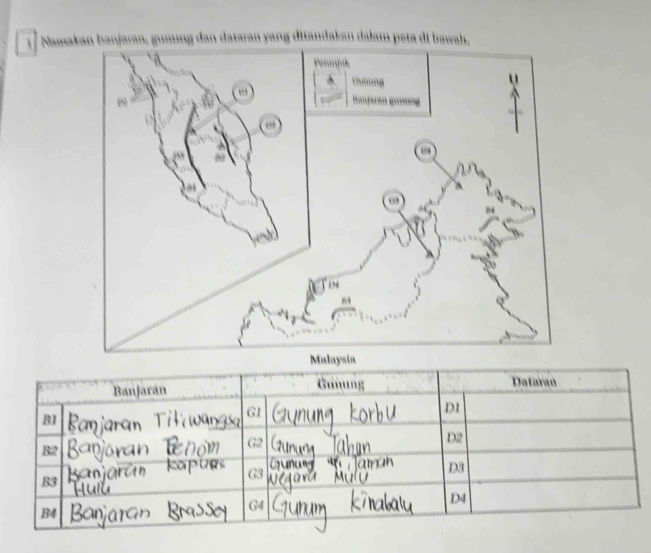 1 Namakan banjaran, gunung dan dataran yang ditandakan dalam peta di bawah.
Petunjuk
Gunung
Banjaran gunung
U
G1
G2
G4
G3
Malaysia
Banjaran Gunung Dataran
B1 Banjaran Titiwangsa G1 Gunung korbu D1
B2 Banjaran Benom G2 Gunung Tahan D2
B3 Banjaran kapuas Hulu G3 Gunung Taman Negara Mulu D3
B4 Banjaran Brassey G4 Gunung kinabalu D4